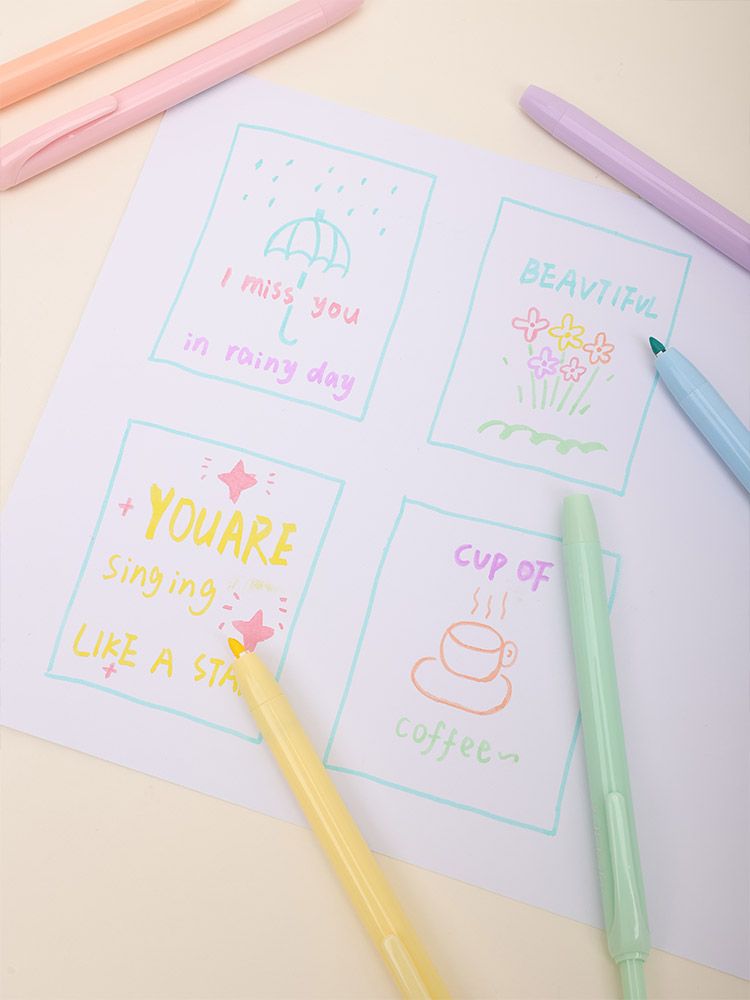 I miss you
in rainy day
BEAUTIFUL
YOUARE
singing
LIKE A STAR
CUP OF
coffee